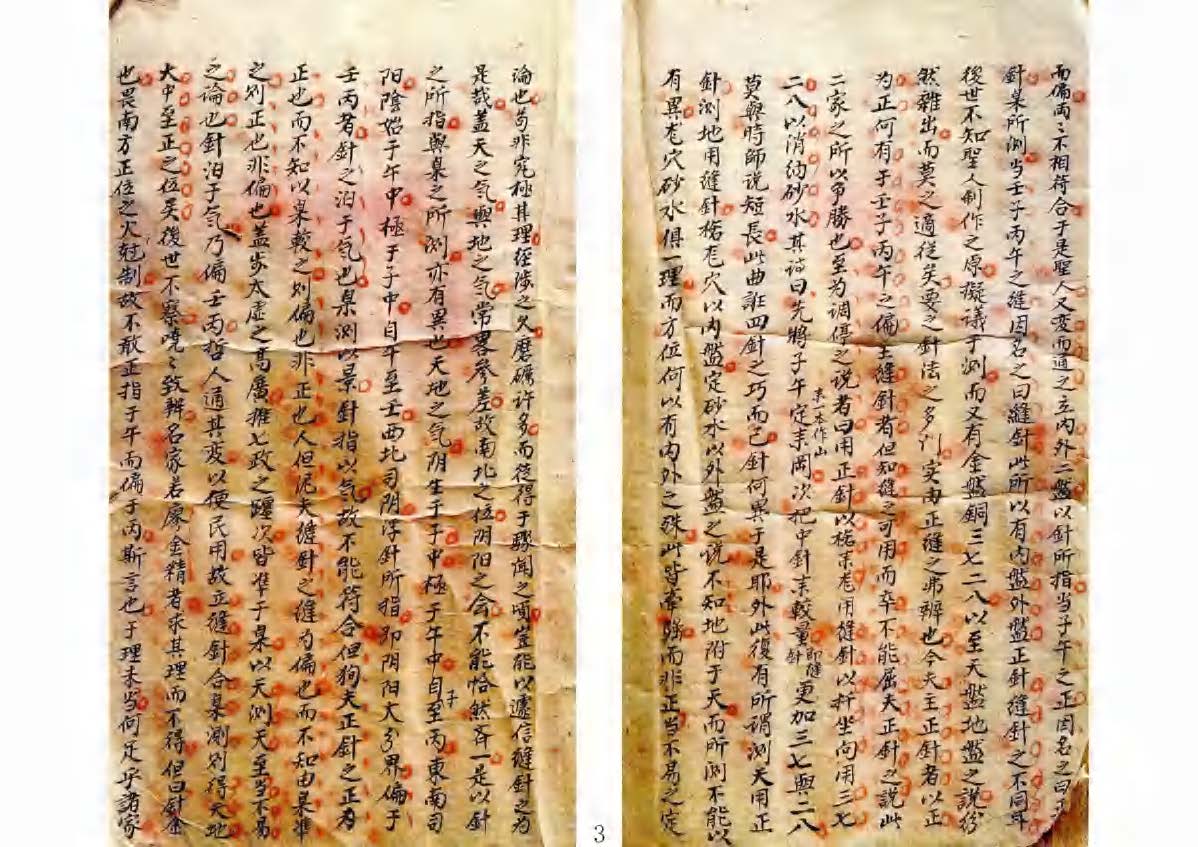 而偏両〻不相符合于是聖人又変而通之立内外二盤以針所指当子午之正因名之曰正
針臬所測当壬子丙午之縫因名之曰縫針此所以有内盤外盤正針縫針之不同耳
後世不知聖人制作之原擬議于測而又有金盤銅三七二八以至天盤地盤之説紛
然雜出而莫之適從矣要之針法之多门实由正縫之弗辨也今夫主正針者以正
為正何有于壬子丙午之偏主縫針者但知縫之可用而卒不能屈夫正針之説此
二家之所以争勝也至為调停之説者曰用正針以格来龙用縫針以扦坐向用三七
二八以消纳砂水其诗曰先將子午定来岡次把中針来較量更加三七與二八
来一本作山
即縫針
莫與時師説短長此曲誑四針之巧而已針何異于是耶外此復有所谓測天用正
針測地用縫針格龙穴以内盤定砂水以外盤之说不知地附于天而所測不能以
有異龙穴砂水俱一理而方位何以有内外之殊此皆牵强而非正当不易之定
論也苟非究極其理経涉之久磨礪许多而後得于驟闻之頃豈能以遽信縫針之为
是哉蓋天之気與地之气常畧參差故南北之位阴阳之会不能恰然斉一是以針
之所指與臬之所測亦有異也天地之气阴生于子中極于午中自子至丙東南司
阳陰始于午中極于子中自午至壬西北司阴浮針所指即阴阳大分界偏于
壬丙者針之泊于气也臬測以景針指以气故不能符合但狥夫正針之正为
正也而不知以臬較之则偏也非正也人但泥夫縫針之縫为偏也而不知由臬準
之则正也非偏也蓋步太虚之高廣推七政之躔次皆凖于臬以天測天至当不易
之论也針泊于气乃偏壬丙哲人通其变以便民用故立縫針合臬測则得天地
大中至正之位矣後世不察嘵〻致辨名家若廖金精者求其理而不得但曰針金
也畏南方正位之火尅制故不敢正指于午而偏于丙斯言也于理未当何足乎諸家
3